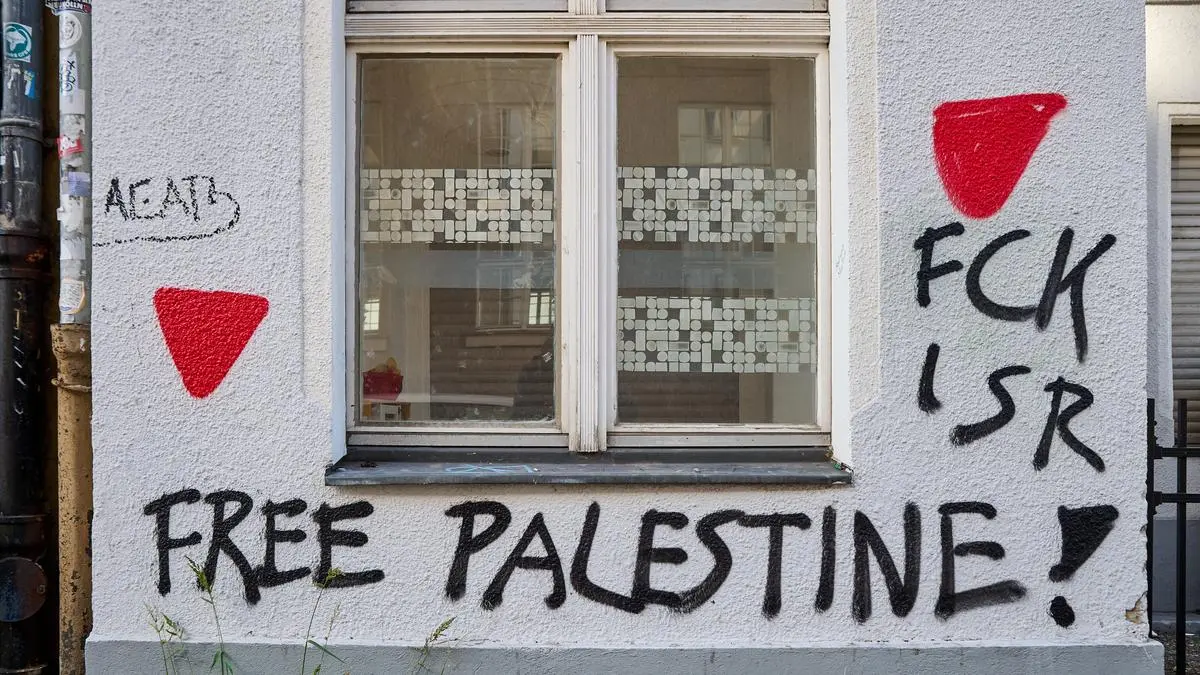 AEATB
FCK
ISR
FREE PALESTINE!